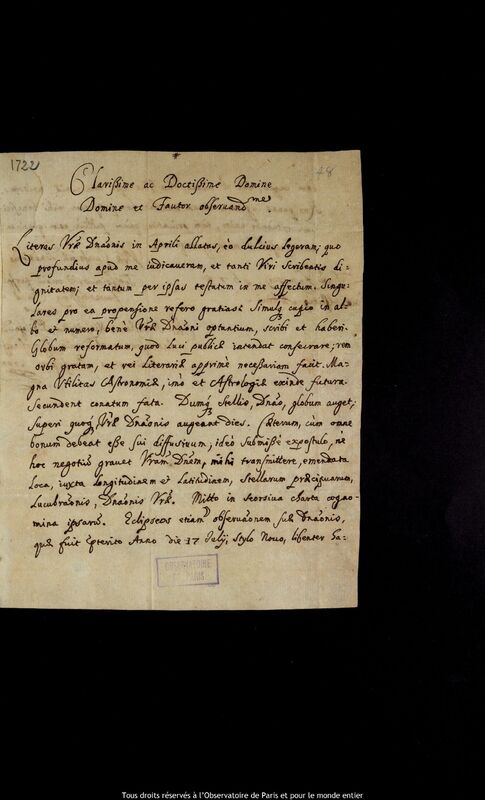 1722
48
Clarissime ac Doctissime Domine
Domine et Fautor observand.me
Literas Vrae Dnãonis in Aprili allatas, eò dulcius legeram; quo
profundius apud me iudicaveram, et tanti Viri Scribentis di-
gnitatem; et tantum per ipsas testatum in me affectum. Singu-
lares pro ea propensione refero gratias: Simulq cupio in al-
bo et numero, bene Vrae Dnãoni optantium, scribi et haberi.
Globum reformatum, quod Luci publicae intendat consecrare; rem
orbi gratam, et rei Literariae apprimè necessariam facit. Ma-
gna Utilitas Astronomiae, imò et Astrologiae exinde futura.
Secundent conatum fata. Dumq Stellis, Dnão, globum auget;
Superi quoq Vrae Dnãonis augeant dies. Caeterum, cùm omne
bonum debeat esse sui diffusivum; ideò submissè expostulo, ne
hoc negotiũ gravet Vram Dnem, mihi transmittere, emendata
Loca, iuxta Longitudinem et Latitudinem, Stellarum praecipuarum,
Lucubraõnis, Dnãonis Vrae. Mitto in seorsiva charta cogno-
mina ipsarũ. Eclipseos etiam observaõnem
quae fuit Anno die 17 Julij, stylo Novo, libenter ha-
OBSERVATOIRE
DE PARIS
Tous droits réservés à l'Observatoire de Paris et pour le monde entier